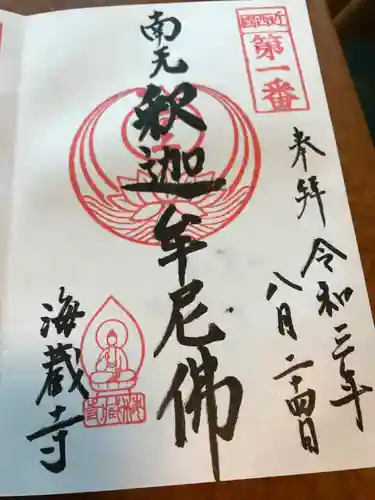 第一番
奉拝
令和三年
八月二十四日
南无釈迦牟尼佛
海蔵寺